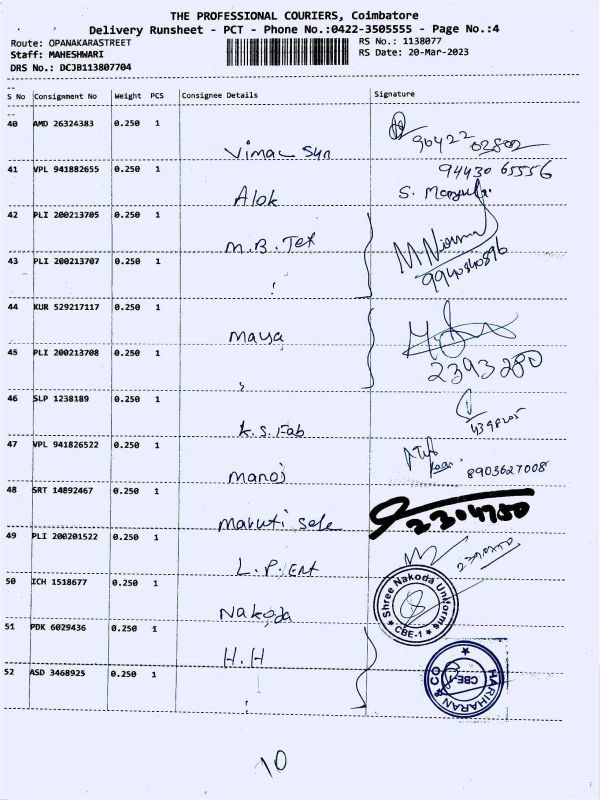 THE PROFESSIONAL COURIERS, Coimbatore
Delivery Runsheet - PCT - Phone No.:0422-3505555 - Page No.:4
Route: OPANAKARASTREET RS No.: 1138077
Staff: MAHESHWARI RS Date: 20-Mar-2023
DRS No.: DCJB113807704
S No Consignment No Weight PCS Consignee Details Signature
40 AMD 26324383 0.250 1
Vimal Sun 96422 02802
41 VPL 941882655 0.250 1 94430 65556
Alok S.
42 PLI 200213705 0.250 1
M.B. Tex M. Nirma
43 PLI 200213707 0.250 1
44 KUR 529217117 0.250 1
Maya
45 PLI 200213708 0.250 1 2393280
46 SLP 1238189 0.250 1
K.S. Fab 4398205
47 VPL 941826522 0.250 1
Manoj 8903627008
48 SRT 14892467 0.250 1
Maruti Sele 2304750
49 PLI 200201522 0.250 1
L.P. Ent
50 ICH 1518677 0.250 1 Shree Nakoda Uniforms
Nakoda CBE-1
51 PDK 6029436 0.250 1
H.H
52 ASD 3468925 0.250 1 HARIHARAN & CO
CBE-1
10